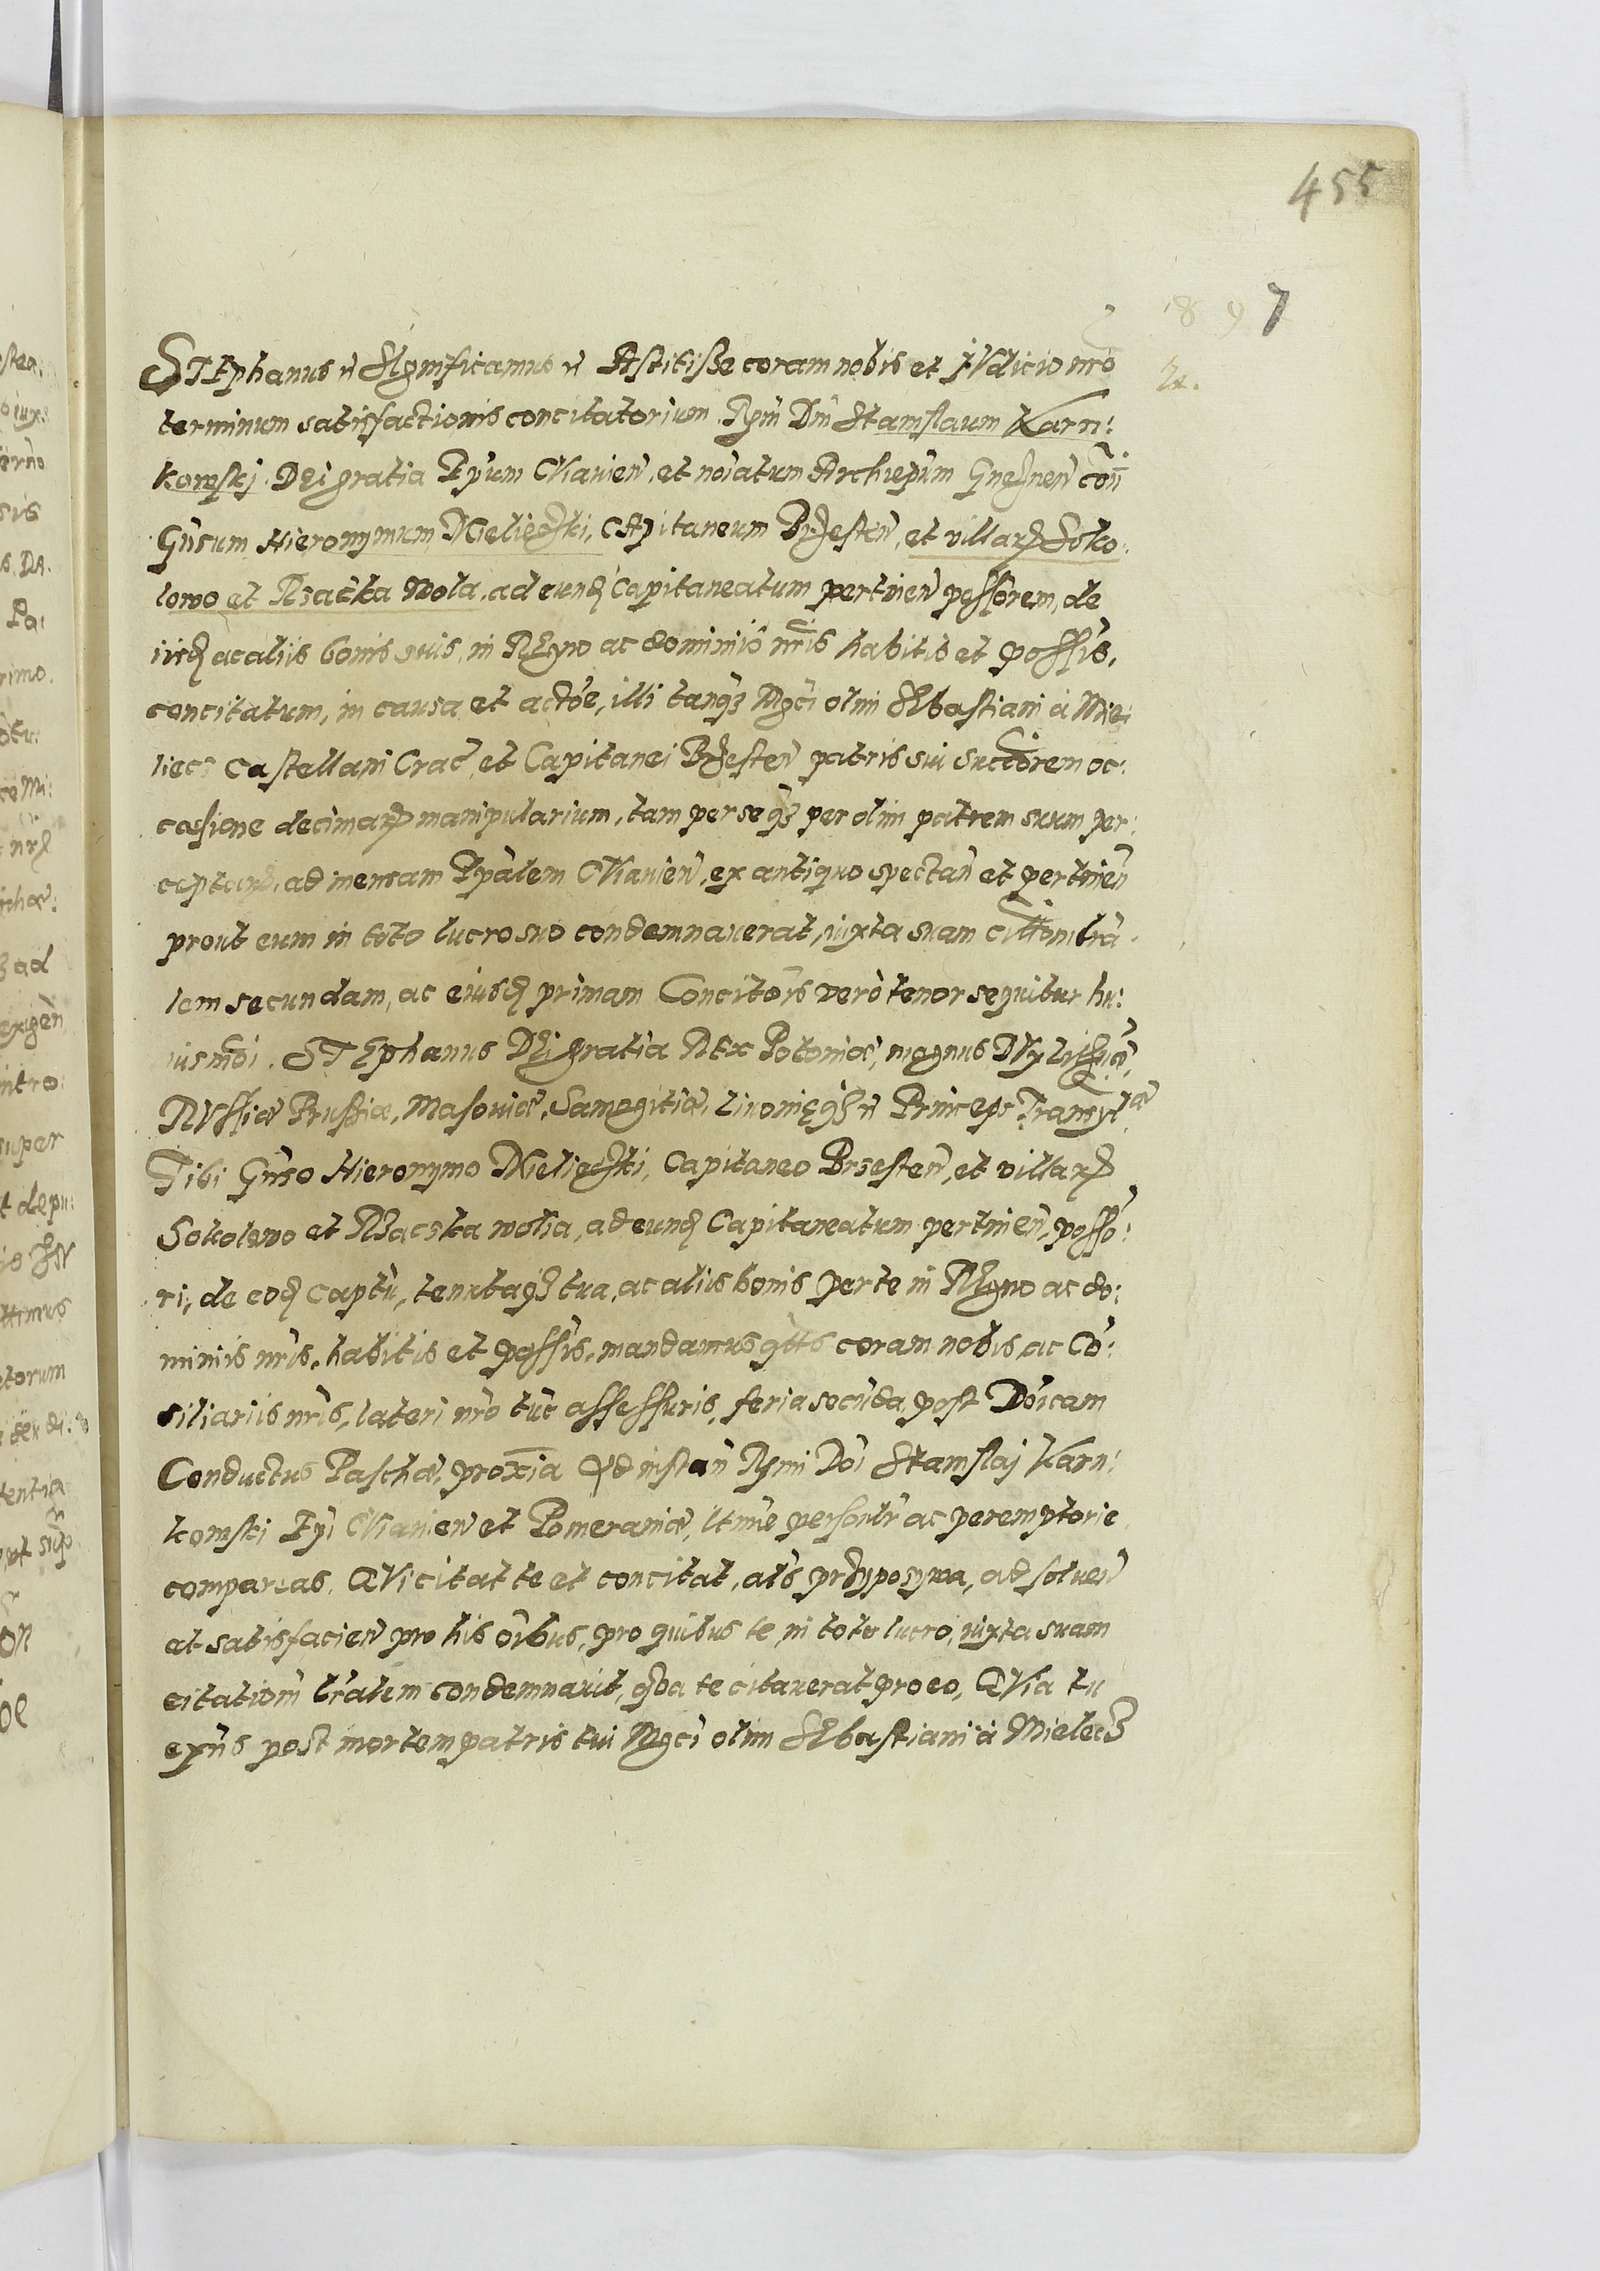 455
7
STEphanus etc Significamus etc Astitisse coram nobis et IVdicio nrõ
terminum satisfactionis concitatorium Rm̃ Dm̃ Stanislaum Karn:
kowski DEi gratia Ep̃um CVavien̄, et noĩatum Archiep̃um Gneznen̄ con̄
Gñsum Hieronymum Mieliecski, CApitaneum Brzesten̄, et villarꝝ Soko:
lowo et Rsaczka Wola, ad eundꝫ Capitaneatum pertinen̄ possorem, de
iisdꝫ ac aliis bonis suis, in REgno ac dominiis nrĩs habitis et possis,
concitatum, in causa et actõe, illi tanqꝫ Mgcĩ olim SEbastiani à Mie:
liecz Castellani Crac̃, et Capitanei Brzesten̄ patris sui succorem oc:
casione decimarꝝ manipularium, tam per se qꝫ per olim patrem suum per:
ceptarꝝ, ad mensam Ep̃alem CVavien̄, ex antiquo spectan̄ et pertinen̄
prout eum in toto lucro suo condemnaverat, iuxta suam cittõni lrã:
lem secundam, ac eiusdꝫ primam Concitõis verò tenor sequitur hu:
iusmõi. STEphanus DEi gratia REx Poloniæ, magnus DVx Lithuaniæ,
RVssiæ Prussiæ, Masoviæ, Samogitiæ, Livonięqꝫ etc Princeps Transylæ
Tibi Gñso Hieronymo Mieliecski, Capitaneo Brzesten̄, et villarꝝ
Sokolowo et Rzaczka wolia, ad eundꝫ Capitaneatum pertinen̄, posso:
ri, de eodꝫ Captũ, tenutaqꝫ tua, ac aliis bonis per te in REgno ac do:
miniis nrĩs, habitis et possis, mandamus qtts coram nobis, ac Cõ:
siliariis nrĩs, lateri nrõ tũc assessuris, feria secũda post Doĩcam
Conductus Paschæ, proxĩa Ad instan̄ Rm̃i Doĩ Stanislai Karn:
kowski Ep̃i CVavien̄ et Pomeraniæ, ltmẽ personlr̃ ac peremptorie
compareas, QVi citat te et concitat, als przypozywa, ad solven̄
et satisfacien̄ pro his oĩbus, pro quibus te, in toto lucro, iuxta suam
citationẽ lrãlem condemnavit, qua te citaverat pro eo, QVia tu
exñs post mortem patris tui Mgcĩ olim SEbastiani à Mielecz